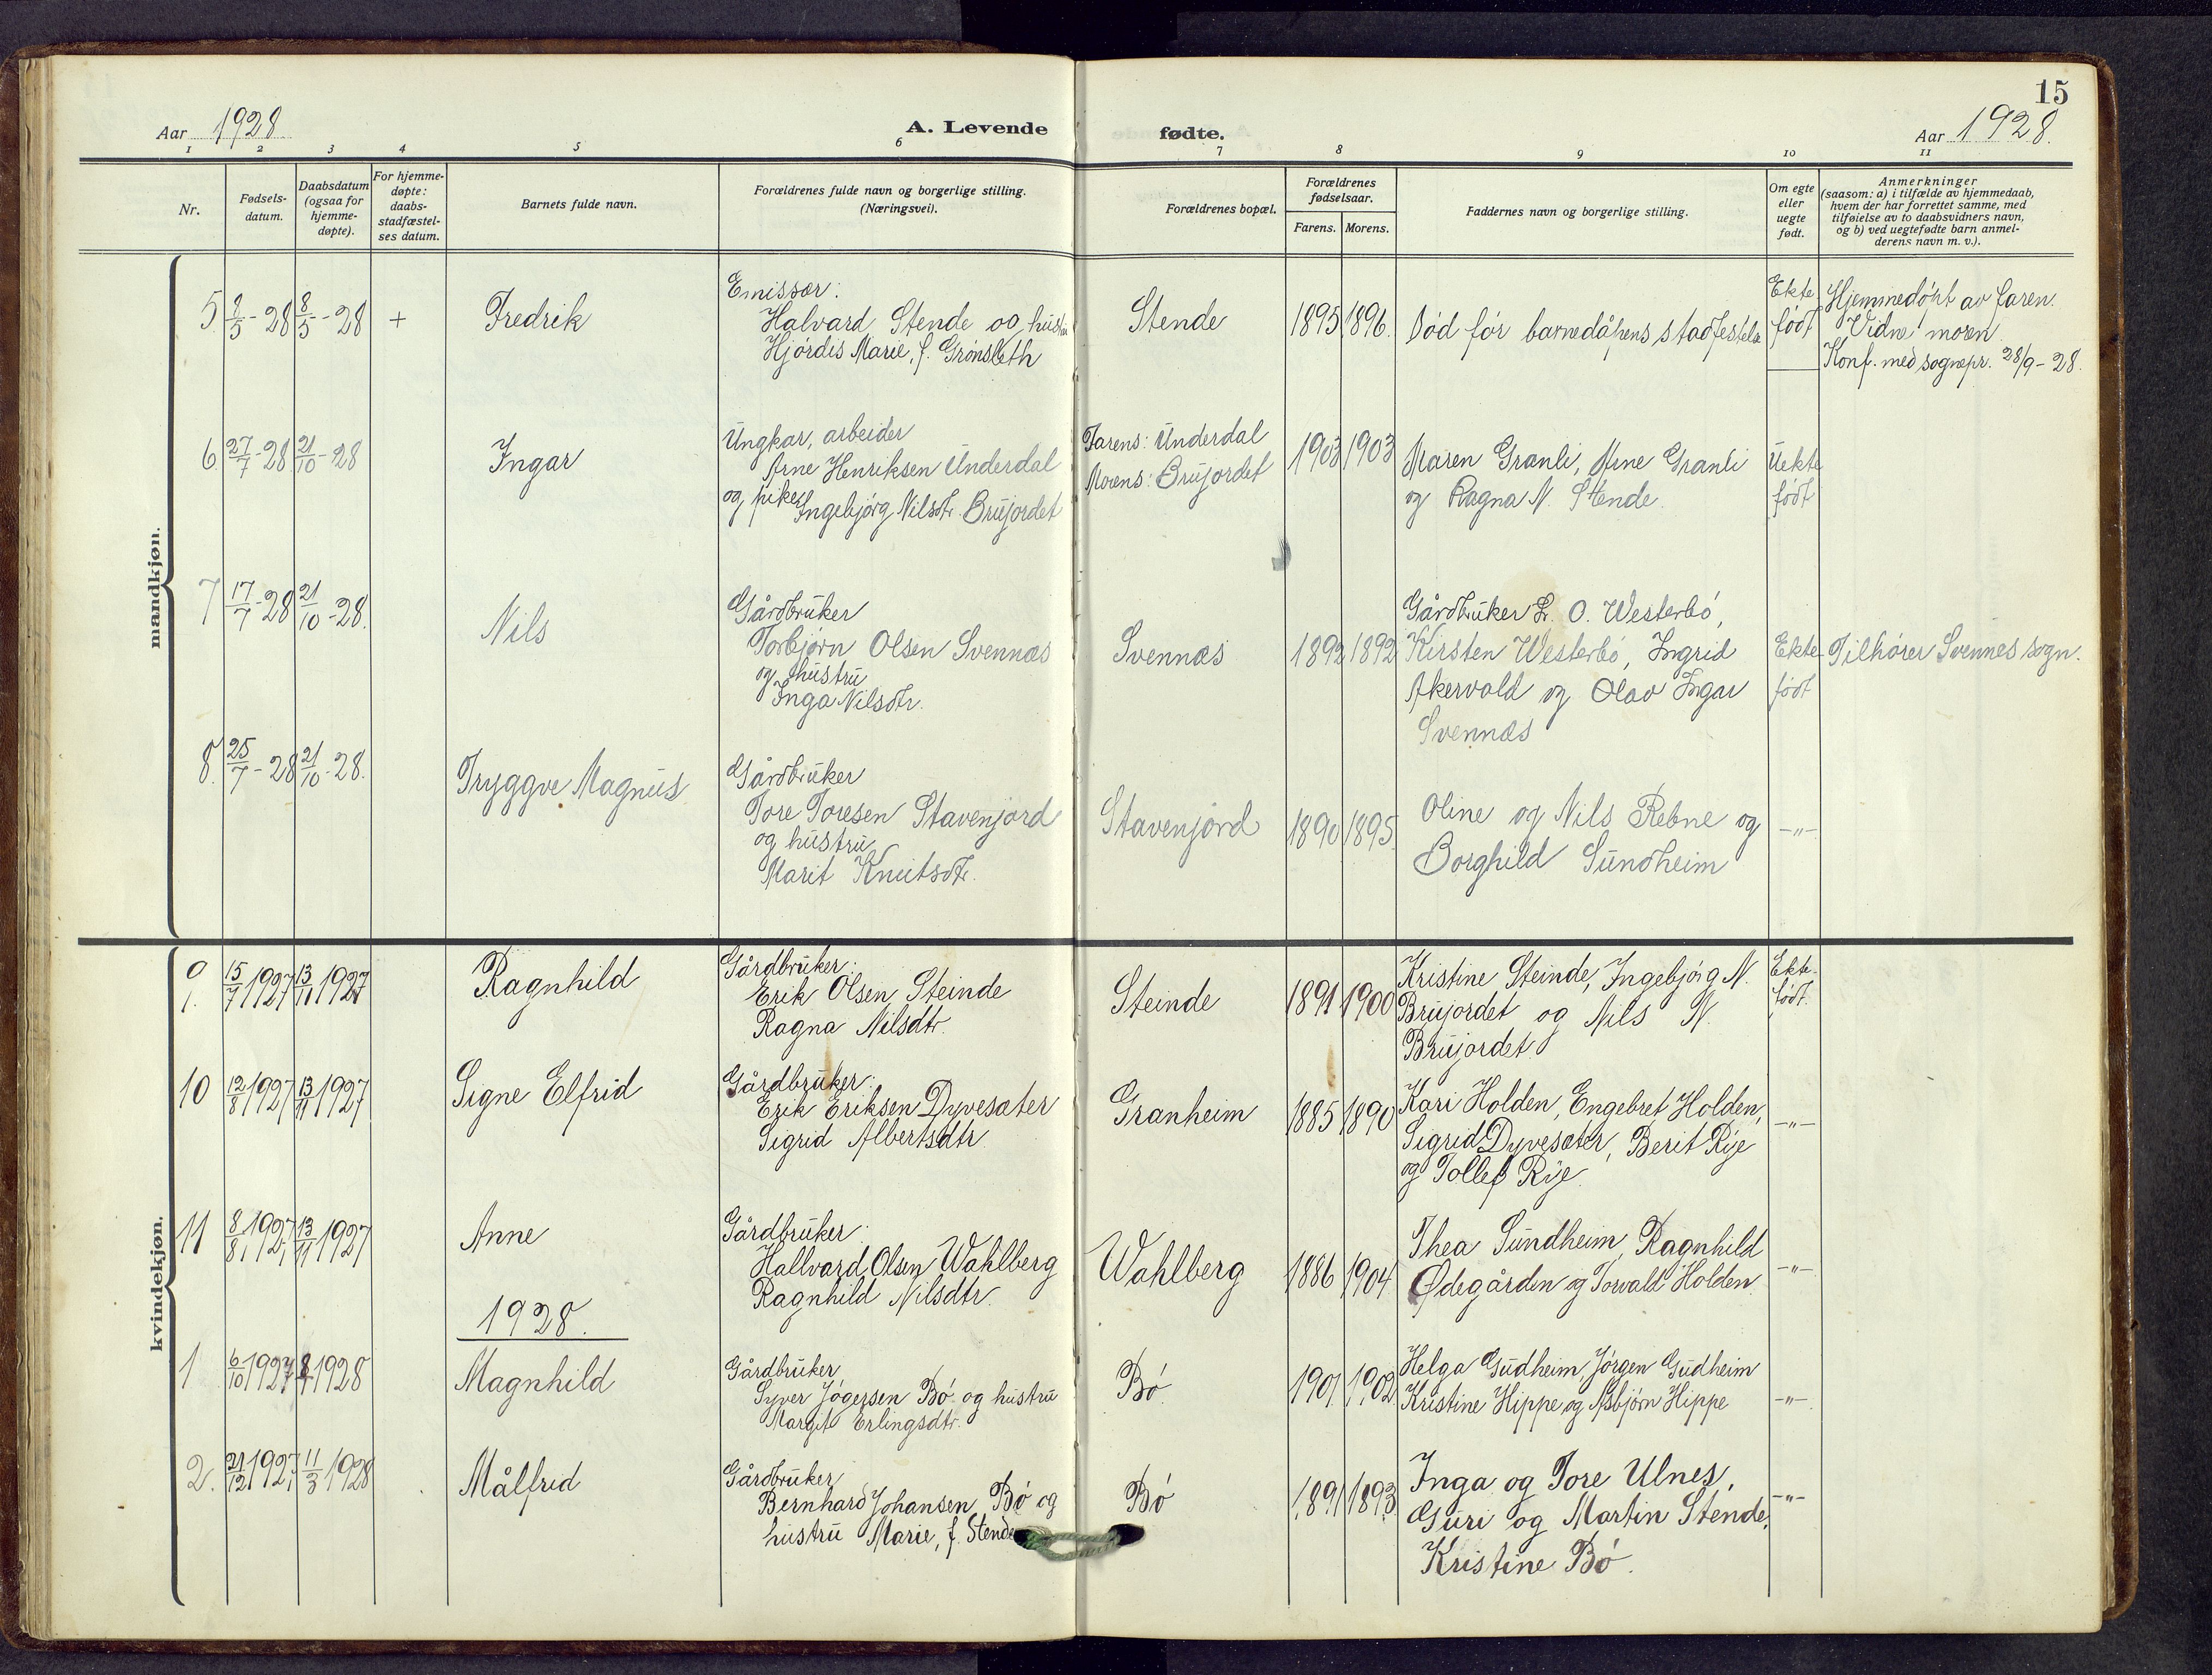 15
Aar 1928
A. Levende fødte.
Aar 1928.
1 2 3 4 5 6 7 8 9 10 11
Nr.
Fødsels-
datum.
Daabsdatum
(ogsaa for
hjemme-
døpte).
For hjemme-
døpte:
daabs-
stadfæstel-
ses datum.
Barnets fulde navn.
Forældrenes fulde navn og borgerlige stilling.
(Næringsvei).
Forældrenes bopæl.
Forældrenes
fødselsaar.
Farens. Morens.
Faddernes navn og borgerlige stilling.
Om egte
eller
uegte
født.
Anmerkninger
(saasom: a) i tilfælde av hjemmedaab,
hvem der har forrettet samme, med
tilføielse av to daabsvidners navn,
og b) ved uegtefødte barn anmel-
derens navn m. v.).
mandkjøn.
5. 8/5-28 8/5-28 + Fredrik
Emissær:
Halvard Stende og hustru
Hjördis Marie, f. Grönsleth
Stende 1895 1896. Död för barnedåpens stadfestelse
Ekte
født
Hjemmedöpt av faren.
Vidne: moren
Konf. med sognepr. 28/9-28.
6. 27/7-28 21/10-28 Ingar
Ungkar, arbeider
Arne Henriksen Underdal
og pike
Ingebjörg Nilsdtr. Brujordet
Farens: Underdal
Morens: Brujordet
1903 1903
Maren Granli, Stine Granli
og Ragna N. Stende.
Uekte
født
7 17/7-28 21/10-28. Nils
Gårdbruker
Torbjørn Olsen Svennæs
og hustru
Inga Nilsdtr.
Svennæs 1892 1892
Gårdbruker L. O. Westerbö,
Kirsten Westerbö, Ingrid
Akervold og Olav Ingar
Svennæs
Ekte
født
Tilhører Svennes sogn.
8. 25/7-28 21/10-28. Tryggve Magnus
Gårdbruker
Tore Toresen Stavenjord
og hustru
Marit Knutsdtr.
Stavenjord 1890 1895.
Oline og Nils Rebne og
Borghild Sundheim
-"-
kvindekjøn.
9. 15/7 1927 13/11 1927 Ragnhild
Gårdbruker:
Erik Olsen Steinde
Ragna Nilsdtr.
Steinde 1891 1900
Kristine Steinde, Ingebjörg N.
Brujordet og Nils N.
Brujordet
Ekte
født.
10 12/8 1927 13/11 1927 Signe Elfrid
Gårdbruker:
Erik Eriksen Dyvesæter
Sigrid Albertsdtr
Granheim 1885 1890
Kari Holden, Engebret Holden,
Sigrid Dyvesæter, Berit Rye
og Tollef Rye.
-"-
11 8/8 1927 13/11 1927 Anne
Gårdbruker:
Hallvard Olsen Wahlberg
Ragnhild Nilsdtr.
Wahlberg 1886 1904
Thea Sundheim, Ragnhild
Ødegården og Torvald Holden.
-"-
1928.
1 6/10 1927 8/1 1928 Magnhild
Gårdbruker
Syver Jögersen Bö og hustru
Margit Erlingsdtr.
Bö 1901 1902.
Helga Gudheim, Jörgen Gudheim
Kristine Hippe og Asbjørn Hippe
-"-
2. 21/12 1927 11/3 1928 Målfrid
Gårdbruker
Bernhard Johansen Bö og
hustru Marie, f. Stende
Bö 1891 1893
Inga og Tore Ulnes,
Guri og Martin Stende,
Kristine Bö.
-"-